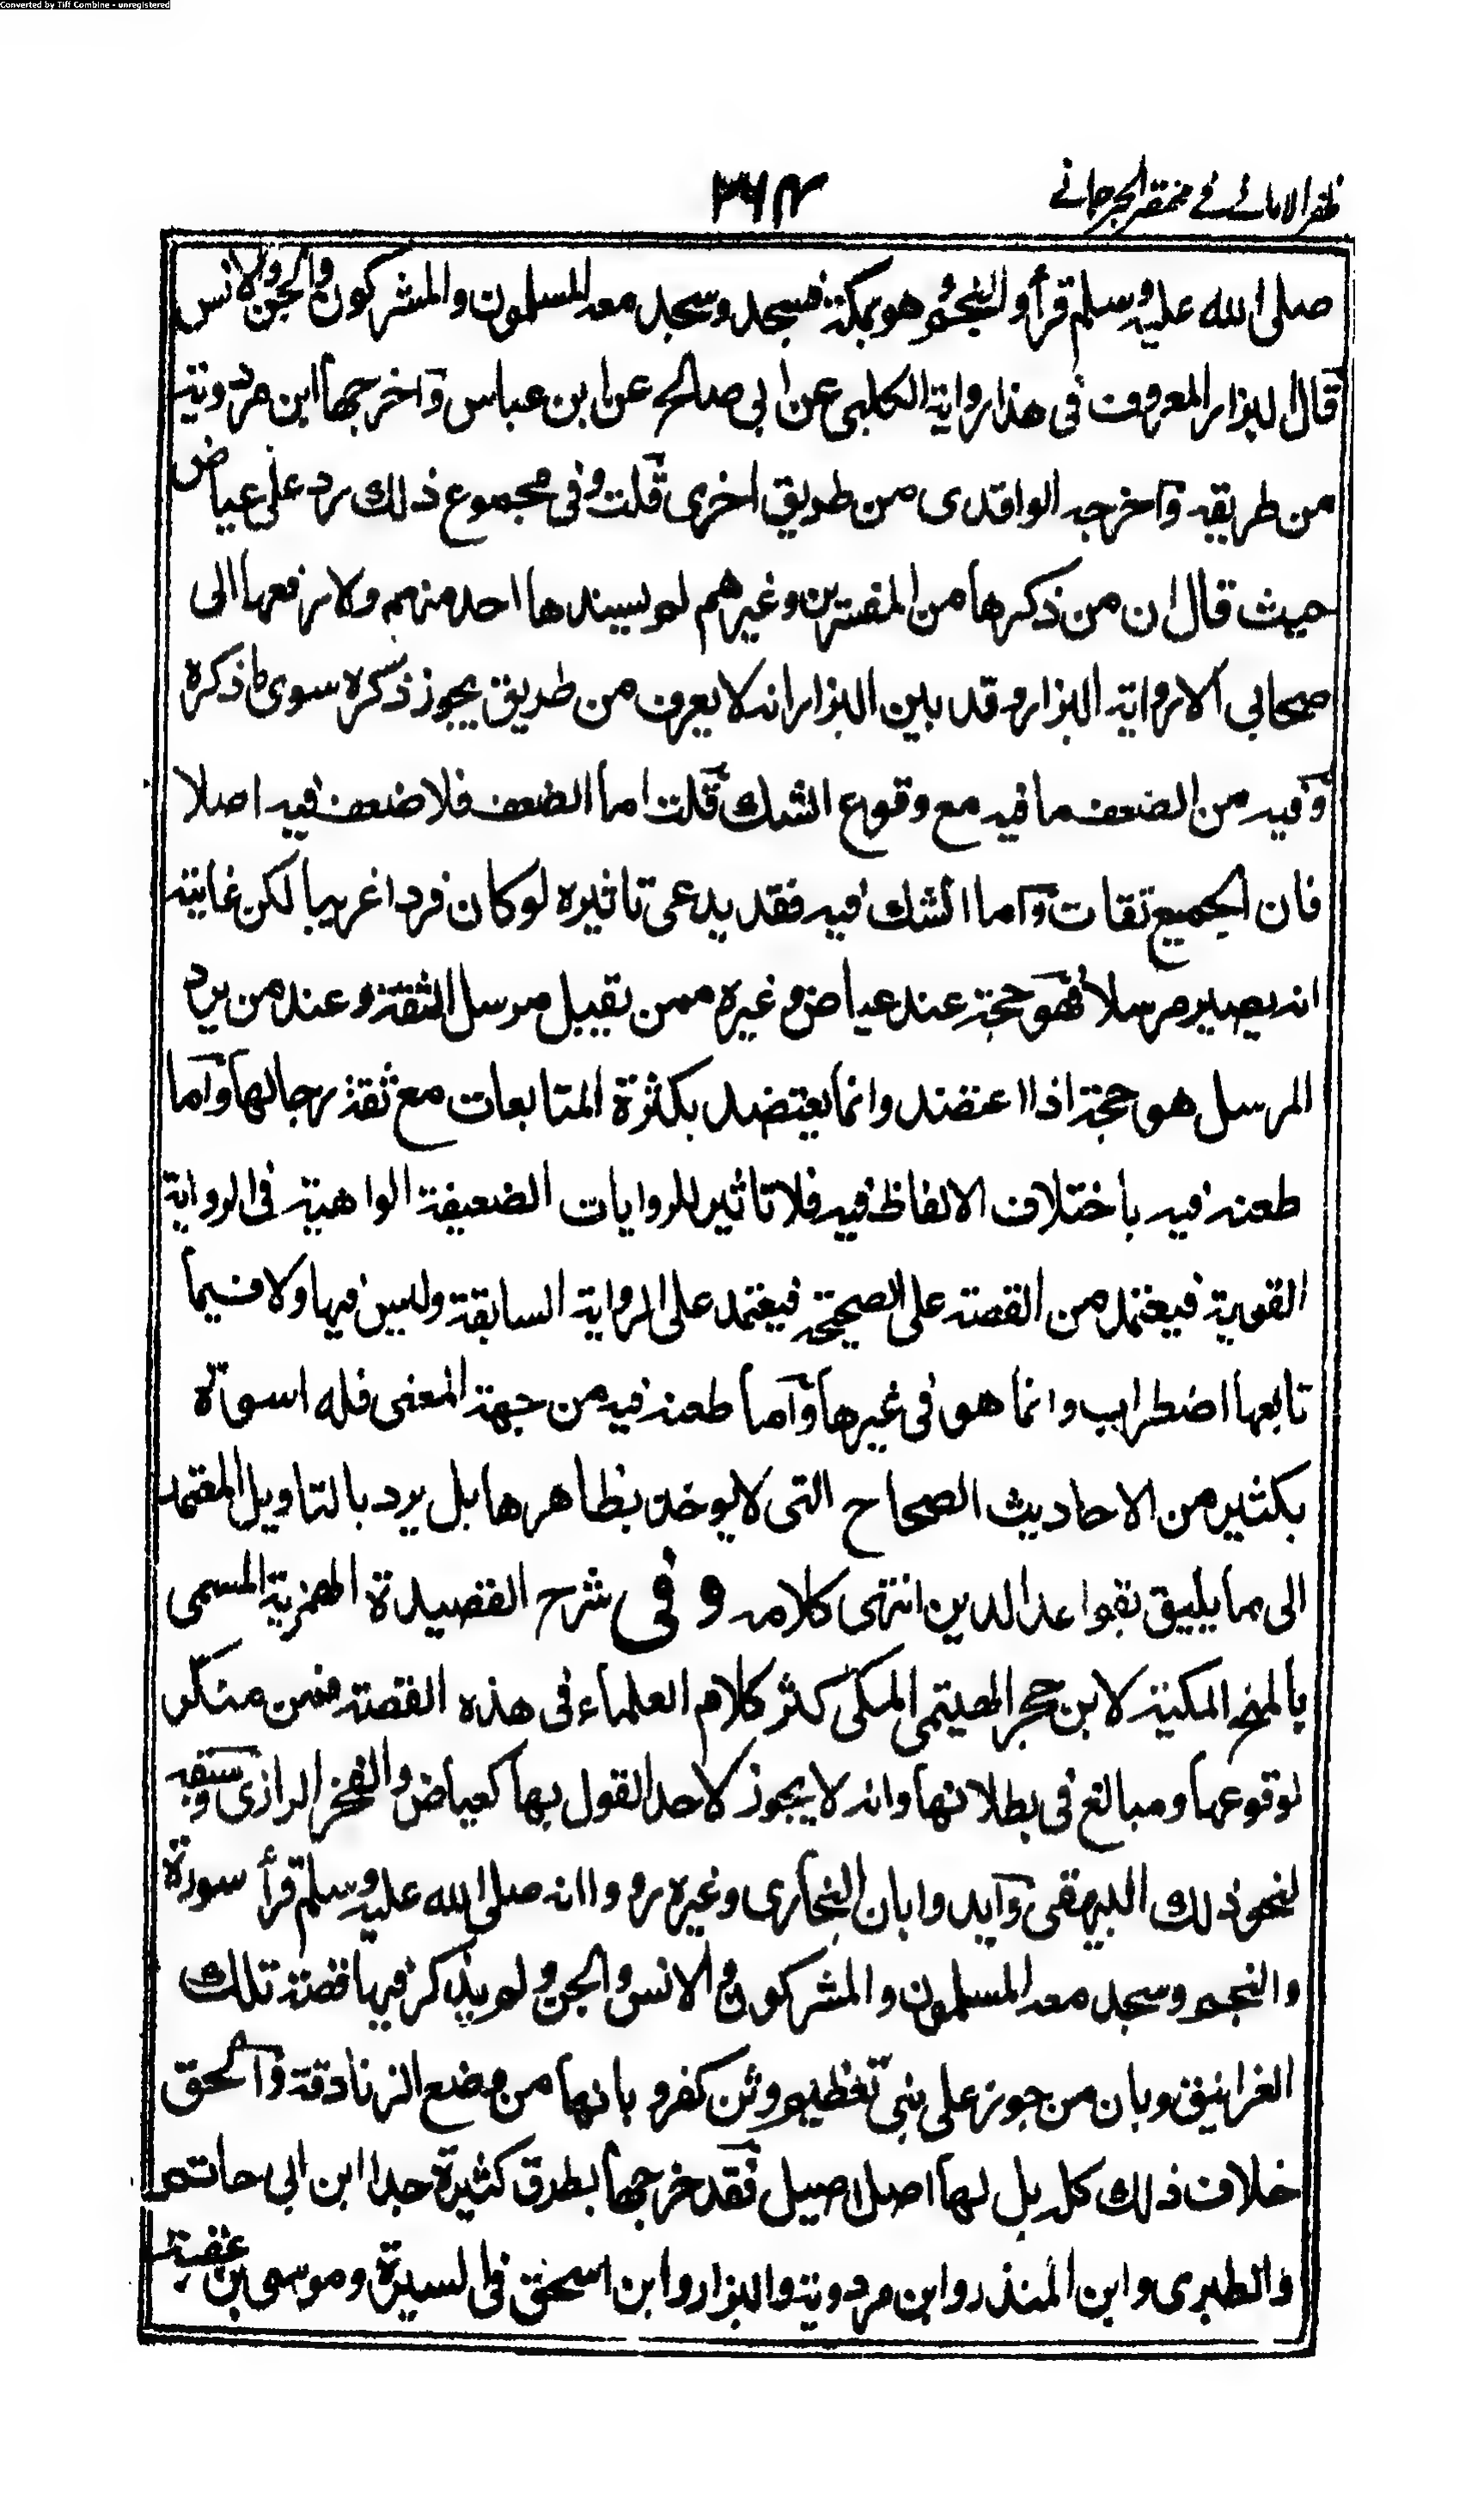 Converted by Tiff Combine - unregistered
ظفر الامانى فى مختصر الجرجانى
٣٦٢
صلى الله عليه وسلم قرأ والنجم وهو بمكة فسجد وسجد معه المسلمون والمشركون والجن والانس
قال البزار المعروف فى هذا رواية الكلبى عن ابى صالح عن ابن عباس واخرجها ابن مردوية
من طريقه واخرجه الواقدى من طريق اخرى قلت وفى مجموع ذلك رد على عياض
حيث قال ان من ذكرها من المفسرين وغيرهم لم يسندها احد منهم ولا رفعها الى
صحابى الا رواية البزار وقد بين البزار انه لا يعرف من طريق يجوز ذكره سوى ما ذكره
وفيه من الضعف ما فيه مع وقوع الشك قلت اما الضعف فلا ضعف فيه اصلا
فان الجميع ثقات واما الشك فيه فقد يدعى تاثيره لو كان فردا غريبا لكن غايته
انه يصير مرسلا فهو حجة عند عياض وغيره ممن يقبل مرسل الثقة وعند من يرد
المرسل هو حجة اذا اعتضد وانما يعتضد بكثرة المتابعات مع ثقة رجالها واما
طعنه فيه باختلاف الالفاظ فيه فلا تاثير للروايات الضعيفة الواهية فى الرواية
القوية فيعتمد من القصة على الصحيحة فيعتمد على الرواية السابقة وليس فيها ولا فيما
تابعها اضطراب وانما هو فى غيرها واما طعنه فيه من جهة المعنى فله اسوة
بكثير من الاحاديث الصحاح التى لا يوخذ بظاهرها بل يرد بالتاويل المعتمد
الى ما يليق بقواعد الدين انتهى كلامه وفى شرح القصيدة الهمزية المسمى
بالمنح المكية لابن حجر الهيتمى المكى كثر كلام العلماء فى هذه القصة فمن منكر
لوقوعها ومبالغ فى بطلانها وانه لا يجوز لاحد القول بها كعياض والفخر الرازى وسبقه
لنحو ذلك البيهقى وايدوا بان البخارى وغيره رووا انه صلى الله عليه وسلم قرأ سورة
والنجم وسجد معه المسلمون والمشركون والانس والجن ولم يذكر فيها قصة تلك
الغرانيق وبان من جوز على نبى تعظيم وثن كفر وبانها من وضع الزنادقة والحق
خلاف ذلك كله بل لها اصل اصيل فقد خرجها بطرق كثيرة جدا ابن ابى حاتم
والطبرى وابن المنذر وابن مردوية والبزار وابن اسحق فى السيرة وموسى بن عقبة